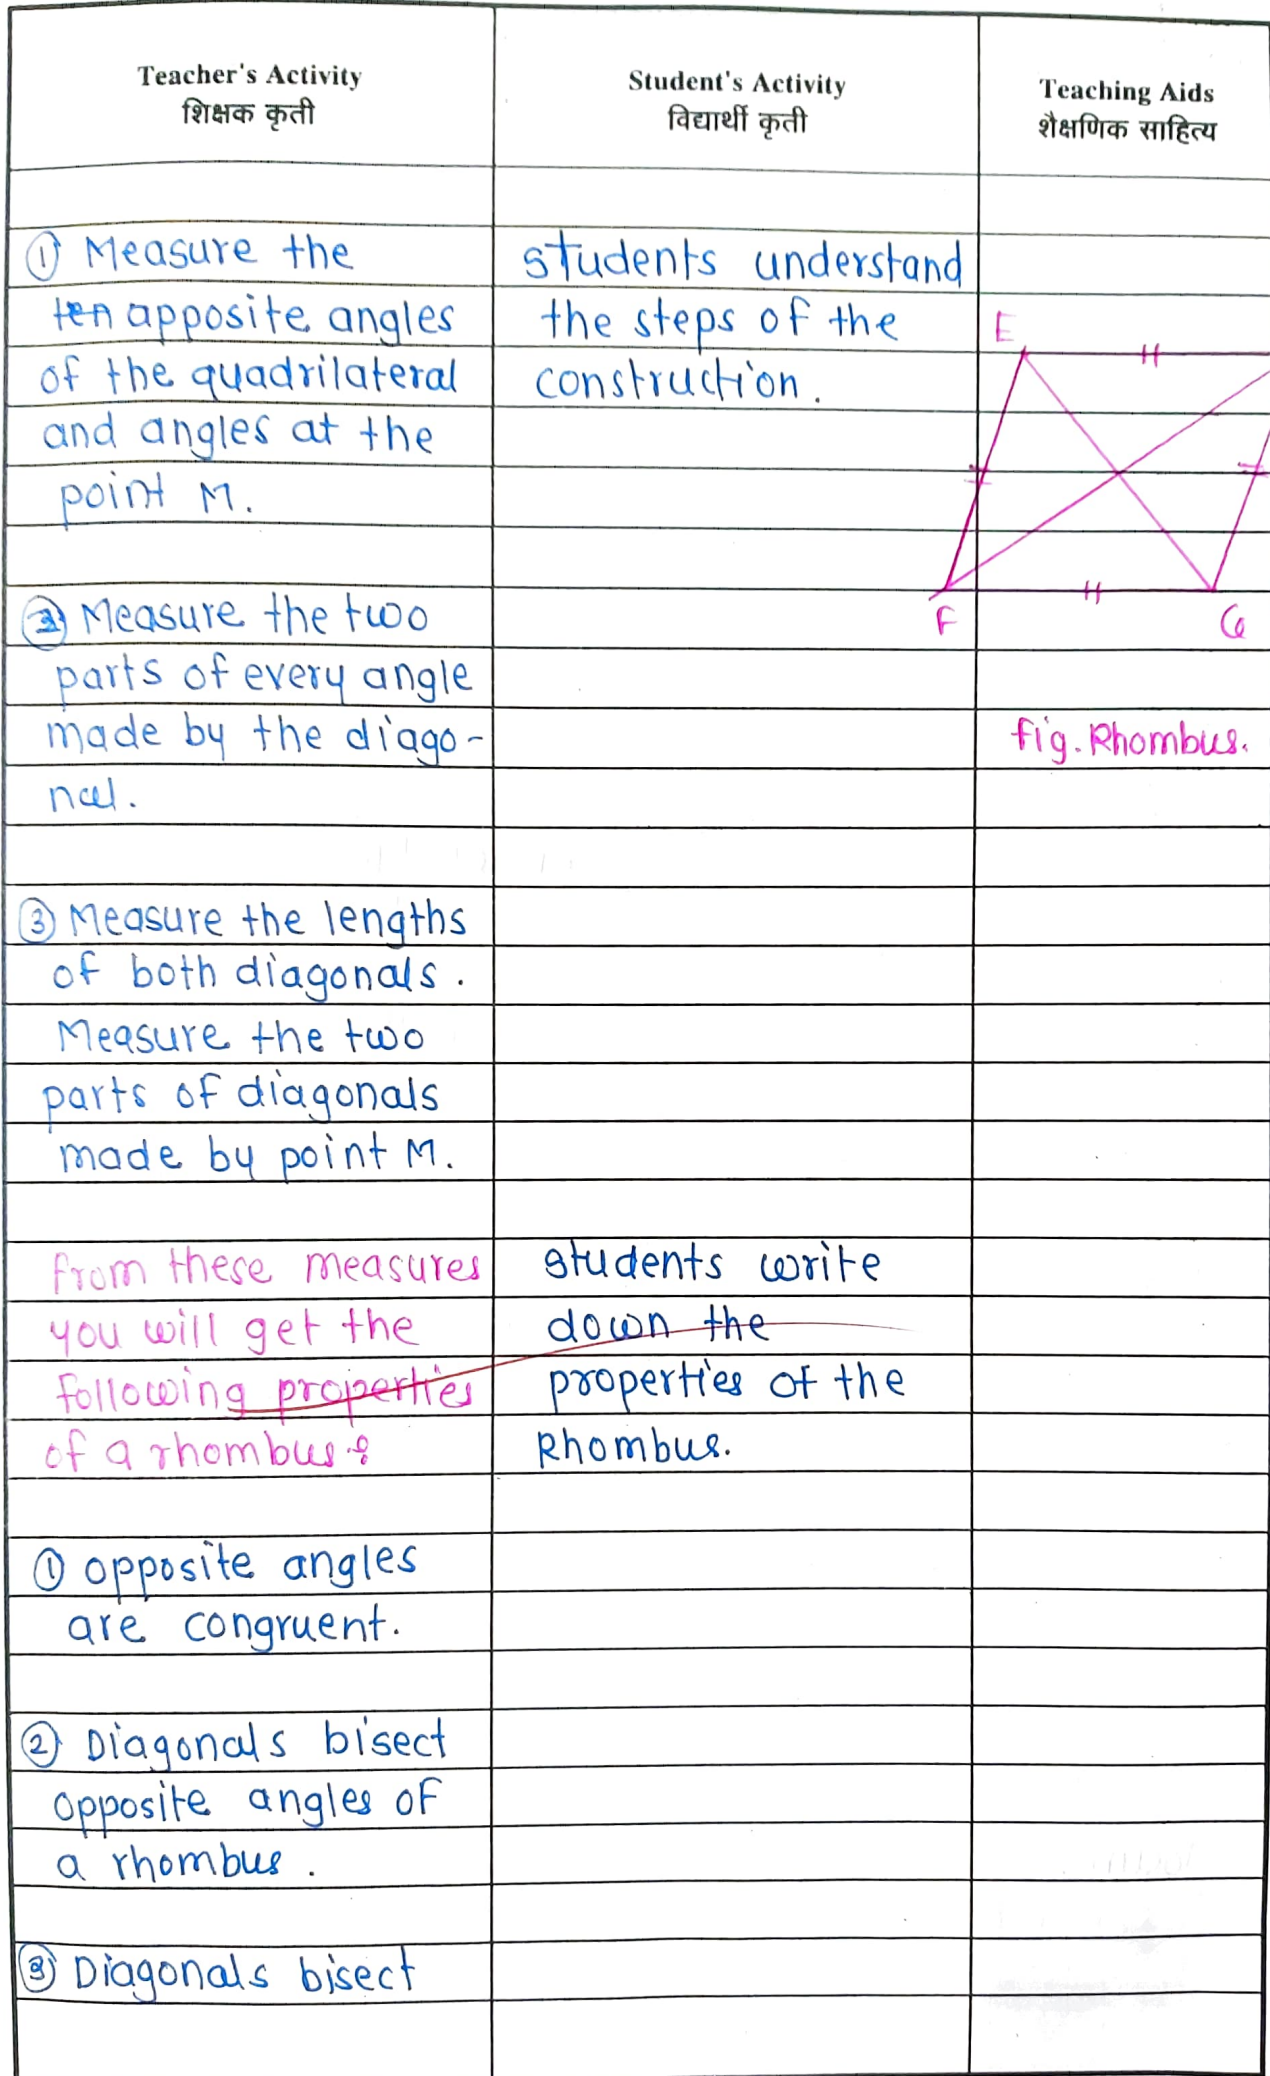 Teacher's Activity
शिक्षक कृती
Student's Activity
विद्यार्थी कृती
Teaching Aids
शैक्षणिक साहित्य
① Measure the
apposite angles
of the quadrilateral
and angles at the
point M.
② Measure the two
parts of every angle
made by the diago-
nal.
③ Measure the lengths
of both diagonals.
Measure the two
parts of diagonals
made by point M.
from these measures
you will get the
following properties
of a rhombus:
① opposite angles
are congruent.
② Diagonals bisect
opposite angles of
a rhombus.
③ Diagonals bisect
students understand
the steps of the
construction.
students write
down the
properties of the
Rhombus.
E
F
G
fig. Rhombus.